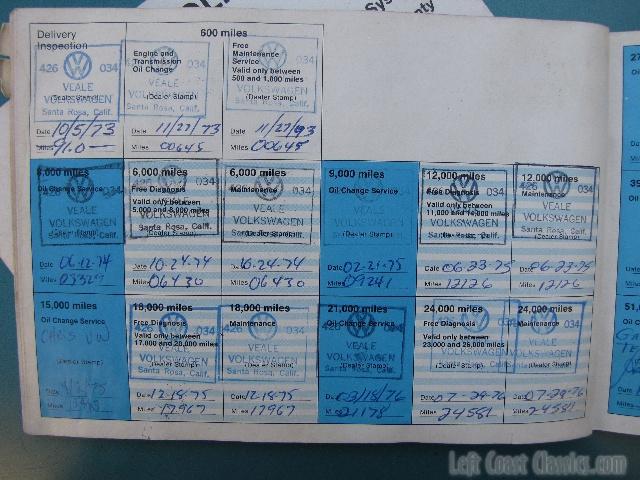 Delivery
Inspection
426 034
VEALE
VOLKSWAGEN
(Dealer Stamp)
Santa Rosa, Calif.
Date 10/5/73
Miles
600 miles
Engine and
Transmission
Oil Change
034
VEALE
VOLKSWAGEN
(Dealer Stamp)
Santa Rosa, Calif.
Date 11/27/73
Miles 00645
Free
Maintenance
Service
Valid only between
500 and 1,000 miles
034
VEALE
VOLKSWAGEN
(Dealer Stamp)
Santa Rosa, Calif.
Date
Miles 00645
Oil Change Service
034
VEALE
VOLKSWAGEN
(Dealer Stamp)
Santa Rosa, Calif.
Date 06-12-74
Miles
6,000 miles
Free Diagnosis
Valid only between
5,000 and 8,000 miles
034
VEALE
VOLKSWAGEN
(Dealer Stamp)
Santa Rosa, Calif.
Date 10-24-74
Miles 06430
6,000 miles
Maintenance
034
VEALE
VOLKSWAGEN
(Dealer Stamp)
Santa Rosa, Calif.
Date 10-24-74
Miles 06430
9,000 miles
Oil Change Service
034
VEALE
VOLKSWAGEN
(Dealer Stamp)
Date 02-21-75
Miles 09241
12,000 miles
Free Diagnosis
Valid only between
11,000 and 14,000 miles
034
VEALE
VOLKSWAGEN
(Dealer Stamp)
Santa Rosa, Calif.
Date 06-23-75
Miles 12126
12,000 miles
Maintenance
426 034
VEALE
VOLKSWAGEN
(Dealer Stamp)
Santa Rosa, Calif.
Date 06-23-75
Miles 12126
15,000 miles
Oil Change Service
VW
(Dealer Stamp)
Date
Miles
18,000 miles
Free Diagnosis
Valid only between
17,000 and 20,000 miles
426 034
VEALE
VOLKSWAGEN
(Dealer Stamp)
Santa Rosa, Calif.
Date 12-18-75
Miles 17967
18,000 miles
Maintenance
426 034
VEALE
VOLKSWAGEN
(Dealer Stamp)
Santa Rosa, Calif.
Date 12-18-75
Miles 17967
21,000 miles
Oil Change Service
034
VEALE
VOLKSWAGEN
(Dealer Stamp)
Santa Rosa, Calif.
Date 03/18/76
Miles 21178
24,000 miles
Free Diagnosis
Valid only between
23,000 and 26,000 miles
VOLKSWAGEN
(Dealer Stamp)
Date 07-29-76
Miles 24581
24,000 miles
Maintenance
VEALE
VOLKSWAGEN
(Dealer Stamp)
Date 07-29-76
Miles 24581
Oil
Oil C
51,
Left Coast Classics.com